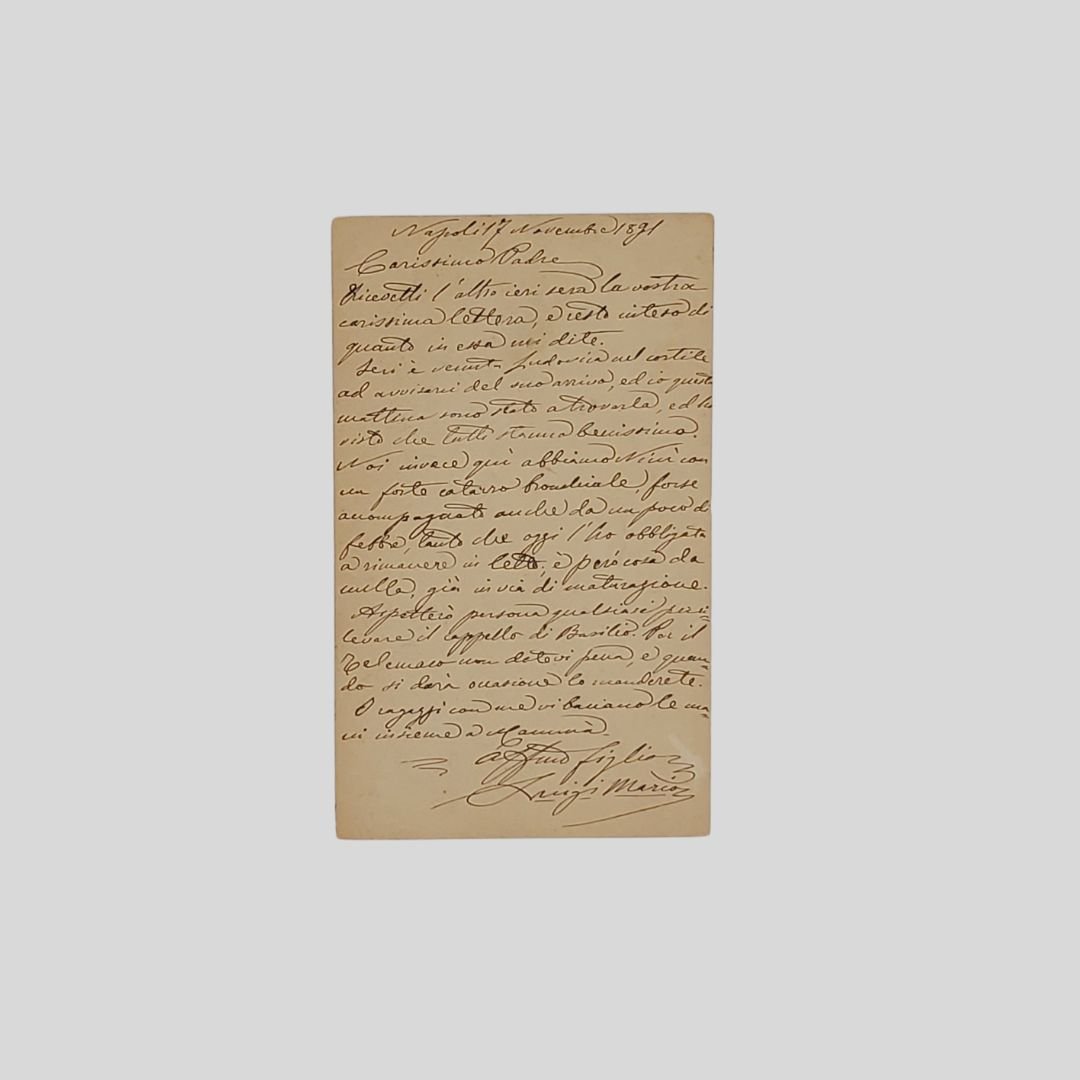 Napoli 17 Novembre 1891
Carissimo Padre
Ricevetti l'altro ieri sera la vostra
carissima lettera, e resto inteso di
quanto in essa mi dite.
Ieri è venuta Ludovica nel cortile
ad avvisarci del suo arrivo, ed io questa
mattina sono stato a trovarla, ed ho
visto che tutti stanno benissimo.
Noi invece quì abbiamo Ninì con
un forte catarro bronchiale, forse
accompagnato anche da un poco di
febbre, tanto che oggi l'ho obbligata
a rimanere in letto; è però cosa da
nulla, già in via di maturazione.
Aspetterò persona qualsiasi per ri=
levare il cappello di Basilio. Per il
Telemaco non datevi pena, e quan=
do si darà occasione lo manderete.
I ragazzi con me vi baciano le ma=
ni insieme a Mammà.
Affmo figlio
Luigi Mario